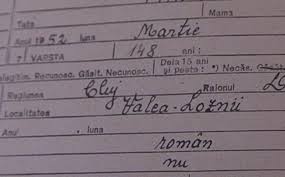 Tata
Mama
Anul 1952 luna Martie
7) VARSTA 148 ani:
Dela 15 ani
Recunosc. Găsit. Necunosc. și peste: *) Necăs.
Regiunea Cluj Raionul
Localitatea Valea-Loznii
Anul luna
român
nu